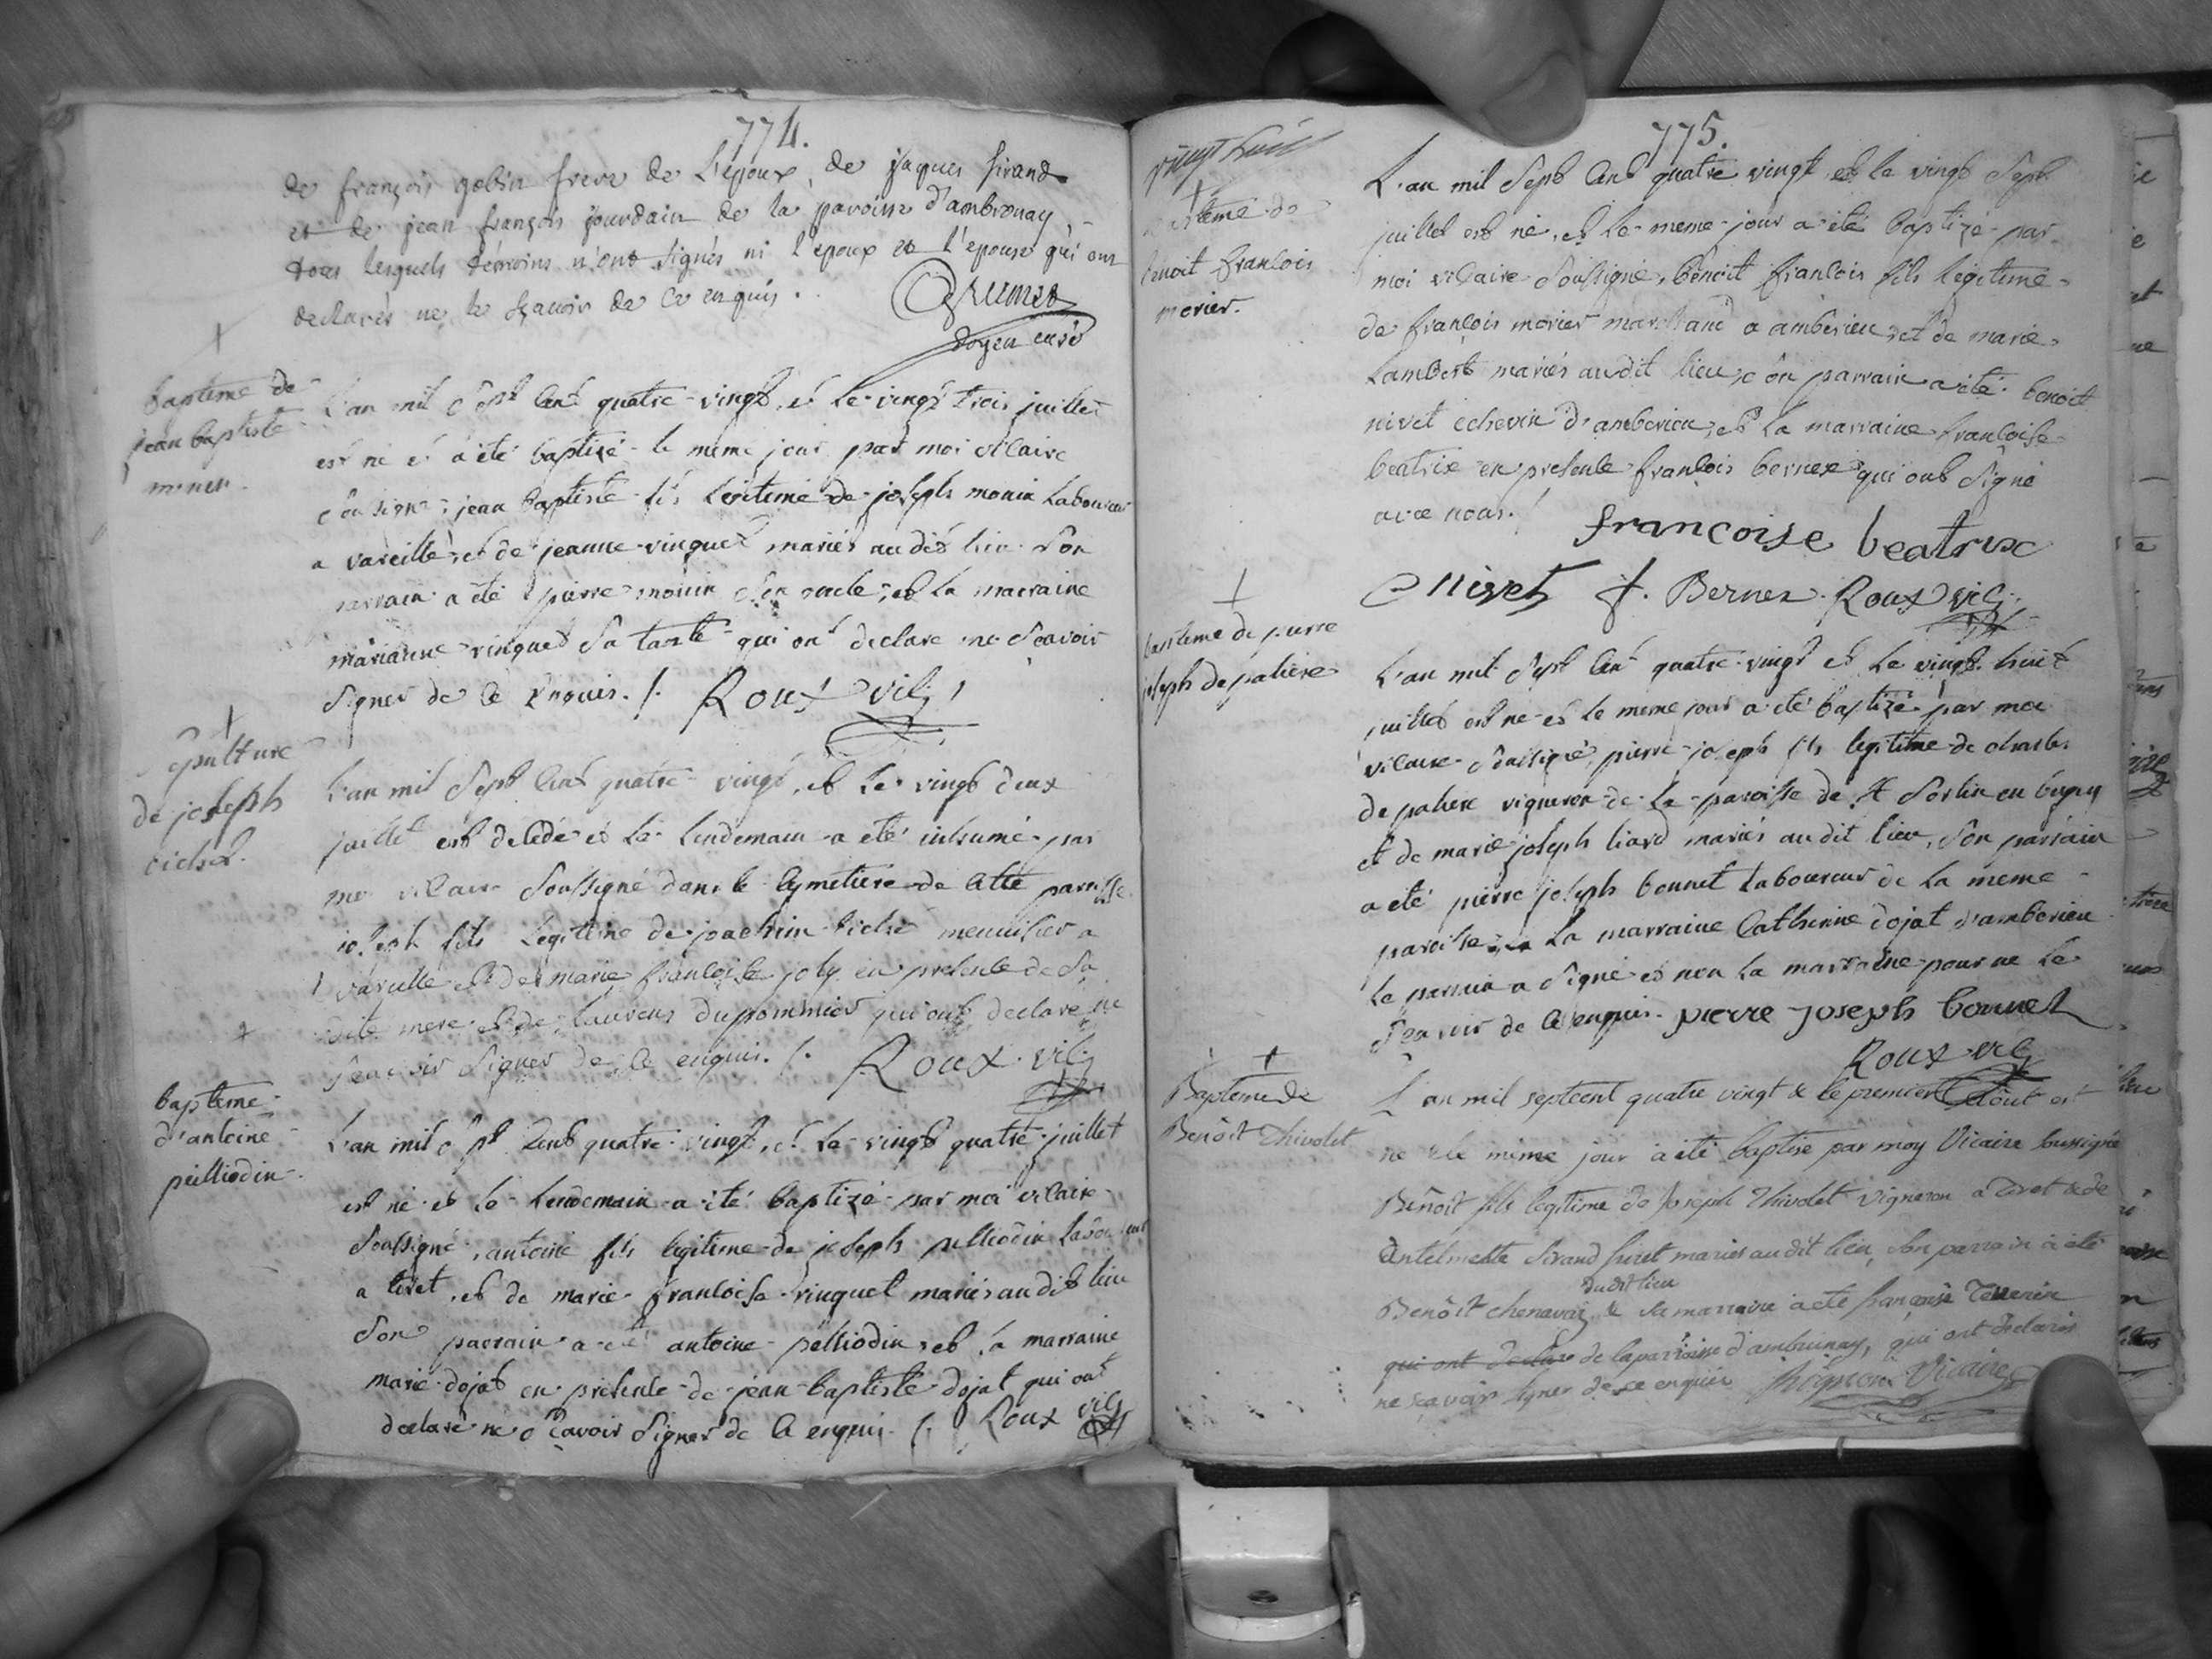 774.
de françois gobin frere de L'epoux, de jaques sirand
et de jean françois jourdain de la paroisse d'ambronay
tous lesquels témoins n'ont signés ni l'epoux et l'epouse qui ont
declarés ne le sçavoir de ce enquis.
doyen curé
baptême de
jean baptiste
monin
L'an mil sept cent quatre-vingt, et le vingt trois juillet
est né et a été baptizé le meme jour par moi vicaire
soussigné, jean baptiste fils légitime de joseph monin Laboureur
a vareille, et de jeanne vinquet mariés au dit lieu son
parrain a été pierre monin son oncle, et la marraine
marianne vinquet sa tante qui ont declare ne sçavoir
signer de ce enquis. /. Roux vic;
sepulture
de joseph
L'an mil sept cent quatre vingt, et le vingt deux
juillet est decedé et le lendemain a été inhumé par
moi vicaire soussigné dans le cymetiere de cette paroisse
joseph fils legitime de joachim menuisier a
vareille et de marie françoise joly en presence de sa
dite mere et de Laurens dupommier qui ont declare ne
sçavoir signer de ce enquis. /. Roux vic;
baptême
d'antoine
pelliodin
L'an mil sept cent quatre vingt, et le vingt quatre juillet
est né et le lendemain a été baptizé par moi vicaire
soussigné, antoine fils legitime de joseph pelliodin laboureur
a tiret, et de marie françoise vinquet mariés au dit lieu
son parrain a été antoine pelliodin, et la marraine
marie dojat en presence de jean baptiste dojat qui ont
declaré ne sçavoir signer de ce enquis. /. Roux vic;
775.
vingt huit
baptême de
benoit françois
morier.
L'an mil sept cent quatre vingt et le vingt sept
juillet est né, et le meme jour a été baptizé par
moi vicaire soussigné, benoit françois fils légitime
de françois morier marchand a amberieu, et de marie
Lambert mariés au dit lieu, son parrain a été benoit
nivet echevin d'amberieu, et la marraine françoise
beatrix en presence françois bernex qui ont signé
avec nous. /
francoise beatrix
Nivet f. Bernex Roux vic;
baptême de pierre
joseph de paliere
L'an mil sept cent quatre vingt et le vingt huit
juillet est né et le meme jour a été baptizé par moi
vicaire soussigné, pierre joseph fils legitime de charles
de paliere vigneron de la paroisse de St sorlin en bugey
et de marie joseph liard mariés au dit lieu, son parrain
a été pierre joseph bonnet laboureur de la meme
paroisse, la marraine Catherine dojat d'amberieu
le parrain a signé et non la marraine pour ne le
sçavoir de ce enquis. pierre joseph bonnet
Roux vic;
Baptême de
Benoit Thivolet
L'an mil septcent quatre vingt & le premier Aout est
né & le même jour à été baptisé par moy Vicaire soussigné
Benoit fils legitime de Joseph Thivolet vigneron a tiret & de
Antelmette Sirand suret mariés au dit lieu, son parrain à été
du dit lieu
Benoît chenavaz & sa marraine à été françoise Tenenin
qui ont declare de la paroisse d'ambronay, qui ont declarés
ne sçavoir signer de ce enquis Vicaire